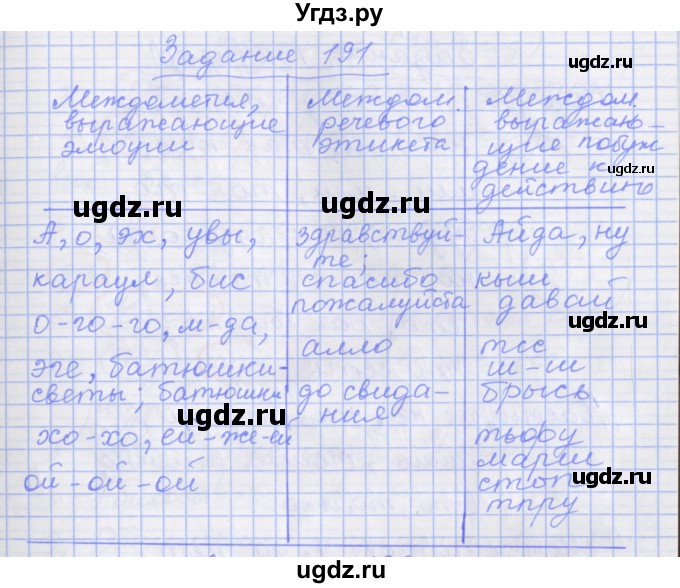 Угдз.ру
Задание 191
Междометия,
выражающие
эмоции
Междом.
речевого
этикета
Междом.
выражаю-
щие побуж
дение к
действию
А, о, эх, увы,
караул, бис
о-го-го, м-да,
эге, батюшки-
светы; батюшки
хо-хо, ей-же-ей
ой-ой-ой
здравствуй-
те;
спасибо
пожалуйста
алло
до свида-
ния
Айда, ну
кыш
давай
тсс
ш-ш
брысь
тьфру
марш
стоп
тпру
ugdz.ru
ugdz.ru
ugdz.ru
ugdz.ru
ugdz.ru
ugdz.ru
ugdz.ru
ugdz.ru
ugdz.ru
ugdz.ru
ugdz.ru